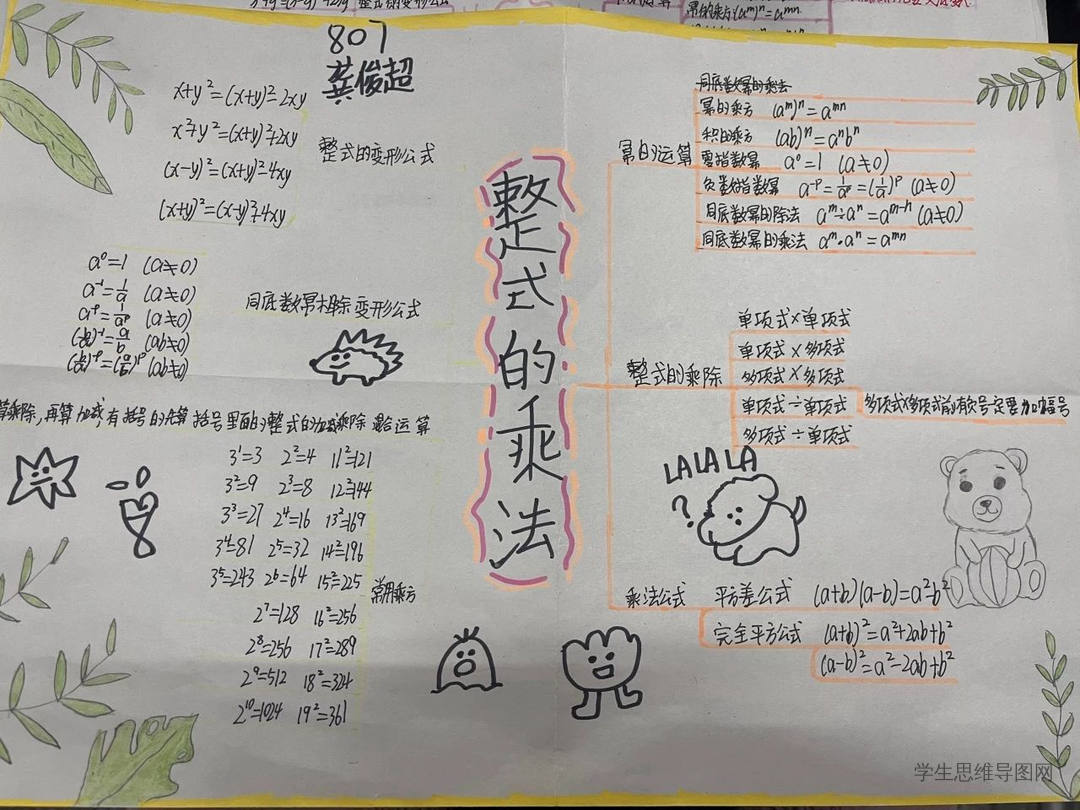 807
龚俊超
整式的乘法
x+y²=(x+y)²-2xy
x²+y²=(x+y)²+2xy
(x-y)²=(x+y)²-4xy
(x+y)²=(x-y)²+4xy
整式的变形公式
a⁰=1 (a≠0)
a⁻¹=1/a (a≠0)
(a≠0)
(ab≠0)
(ab≠0)
同底数幂相除变形公式
算乘除,再算加减,有括号的先算括号里面的整式的加减乘除混合运算
3¹=3 2²=4 11²=121
3²=9 2³=8 12²=144
3³=27 2⁴=16 13²=169
3⁴=81 2⁵=32 14²=196
3⁵=243 2⁶=64 15²=225
2⁷=128 16²=256
2⁸=256 17²=289
2⁹=512 18²=324
2¹⁰=1024 19²=361
常用乘方
幂的运算
同底数幂的乘法
幂的乘方 (aᵐ)ⁿ=aᵐⁿ
积的乘方 (ab)ⁿ=aⁿbⁿ
零指数幂 a⁰=1 (a≠0)
负数指数幂 a⁻ᵖ=1/aᵖ=(1/a)ᵖ (a≠0)
同底数幂的除法 aᵐ÷aⁿ=aᵐ⁻ⁿ (a≠0)
同底数幂的乘法 aᵐ·aⁿ=aᵐⁿ
整式的乘除
单项式×单项式
单项式×多项式
多项式×多项式
单项式÷单项式
多项式÷单项式
多项式×多项式前有负号一定要加括号
LALALA
?
乘法公式
平方差公式 (a+b)(a-b)=a²b²
完全平方公式 (a+b)²=a²+2ab+b²
(a-b)²=a²-2ab+b²
学生思维导图网